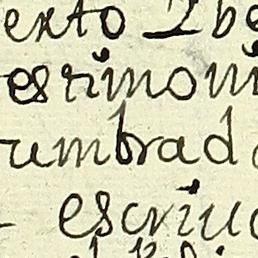 exto 2 be
estimoni
umbrad
escriv